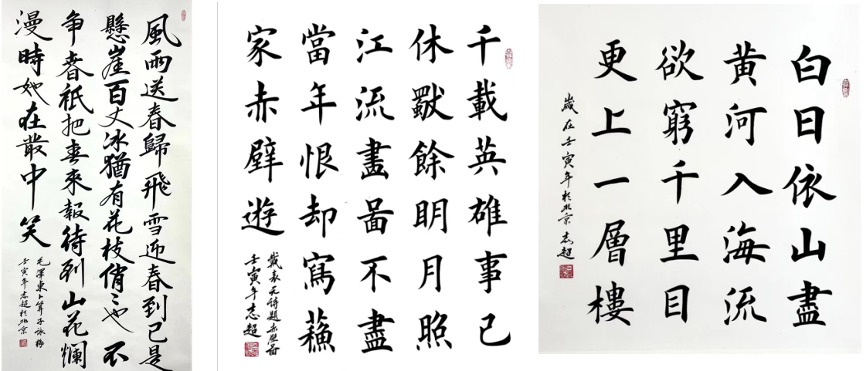 風雨送春歸飛雪迎春到已是
懸崖百丈冰猶有花枝俏〻也不
争春祇把春來報待到山花爛
漫時她在叢中笑
毛澤東卜算子詠梅
壬寅年志超於北京
千載英雄事已
休獸餘明月照
江流畫啚不盡
當年恨却寫蘓
家赤壁遊
戴表元詩題赤壁啚
壬寅年志超
白日依山盡
黄河入海流
欲窮千里目
更上一層樓
歲在壬寅年於北京志超